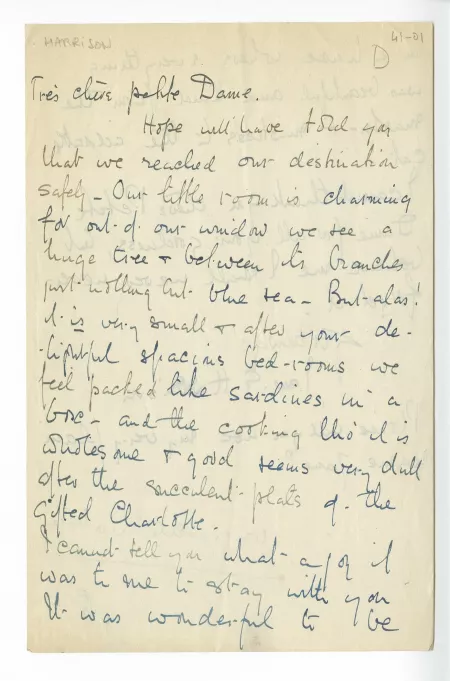 HARRISON
41-01
D
Très chère petite Dame.
Hope will have told you
that we reached our destination
safely - Our little room is charming
for out of our window we see a
huge tree + between its branches
just nothing but blue sea - But alas!
it is very small + after your de-
-lightful spacious bed-rooms we
feel packed like sardines in a
box - and the cooking tho' it is
wholesome + good seems very dull
after the succulent plats of the
gifted Charlotte.
I cannot tell you what a joy it
was to me to stay with you
It was wonderful to be